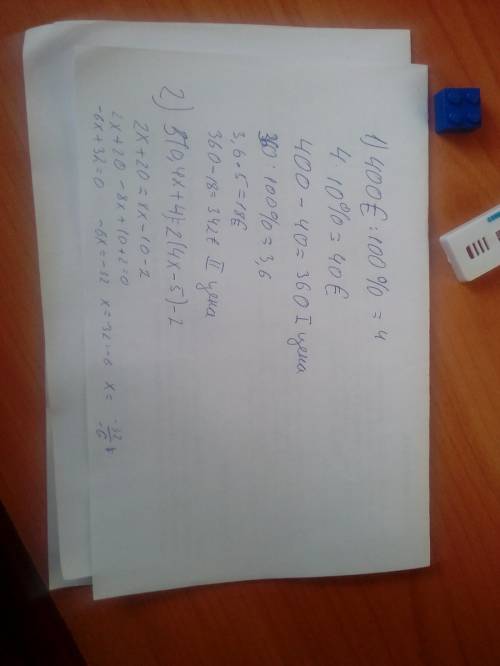 1) 400€ : 100% = 4
4 · 10% = 40€
400 - 40 = 360 I цена
360 : 100% = 3,6
3,6 · 5 = 18€
360 - 18 = 342€ II цена
2) 5(0,4x + 4) = 2(4x - 5) - 2
2x + 20 = 8x - 10 - 2
2x + 20 - 8x + 10 + 2 = 0
-6x + 32 = 0 -6x = -32 x = -32 : -6 x = -32/-6